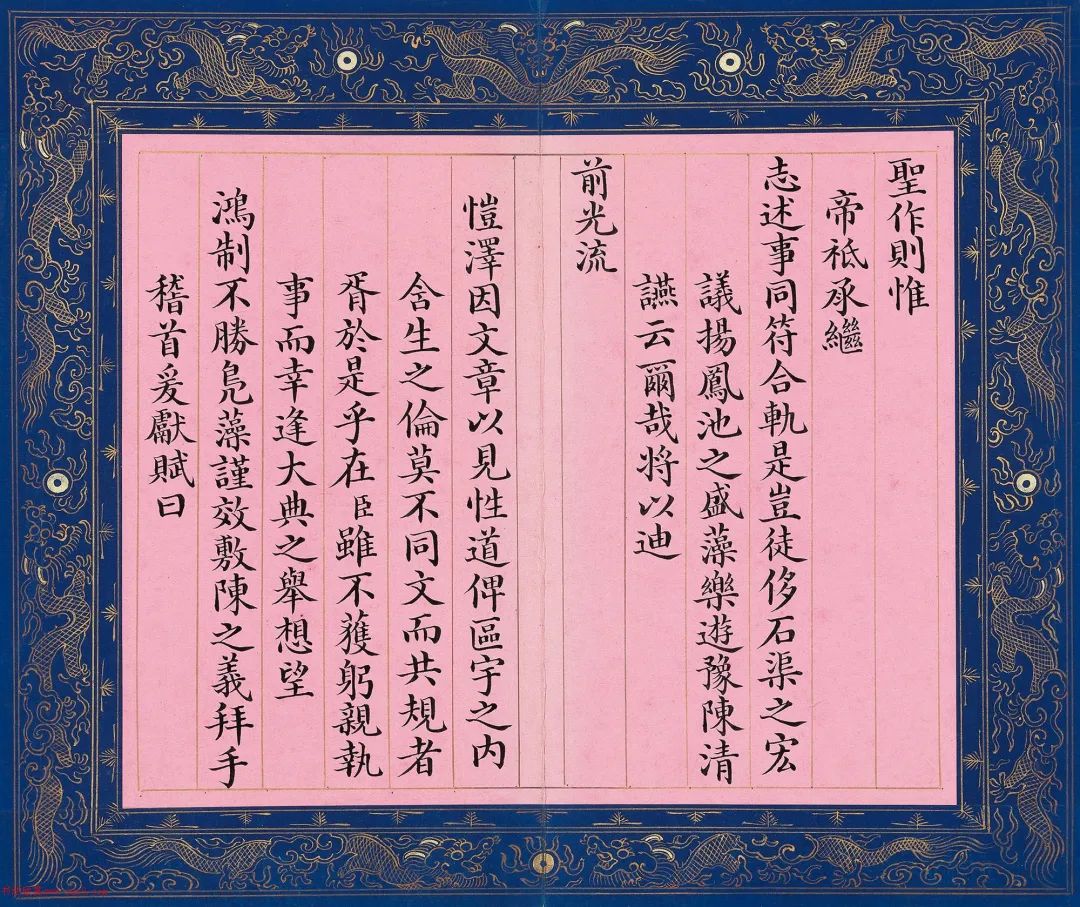 聖作則惟
帝祗承繼
志述事同符合軌是豈徒侈石渠之宏
議揚鳳池之盛藻樂遊豫陳清
讌云爾哉将以迪
前光流
愷澤因文章以見性道俾區宇之内
含生之倫莫不同文而共規者
胥於是乎在臣雖不獲躬親執
事而幸逢大典之舉想望
鴻制不勝鳧藻謹效敷陳之義拜手
稽首爰獻賦曰